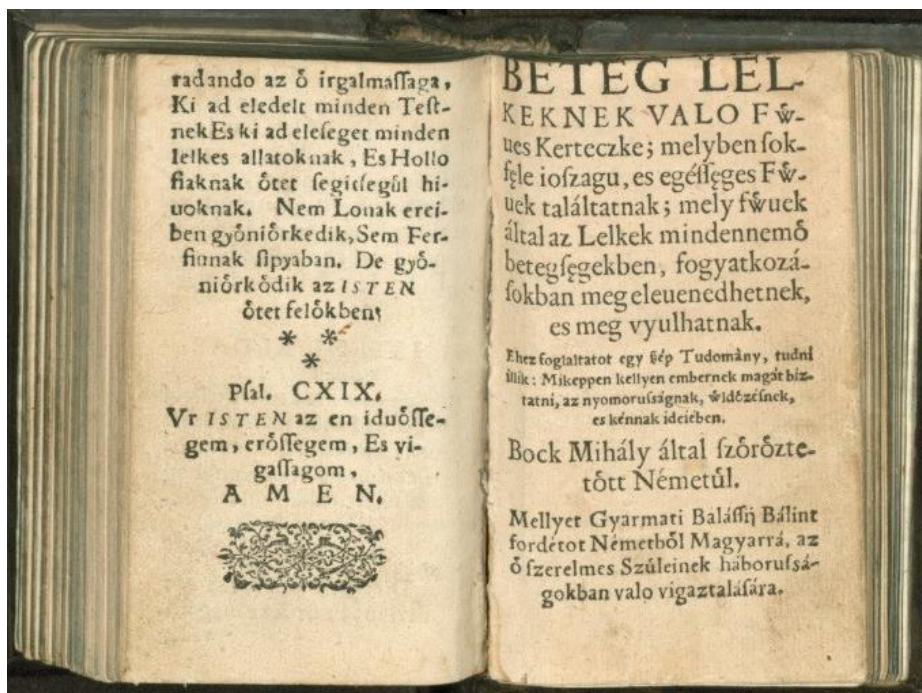 radando az ő irgalmaſſaga,
Ki ad eledelt minden Teſt-
nekEs ki ad eleſeget minden
lelkes allatoknak, Es Hollo
fiaknak őtet ſegitſegűl hi-
uoknak. Nem Lonak erei-
ben győniőrkedik, Sem Fer-
finnak ſipyaban. De győ-
niőrkődik az ISTEN
őtet felőkben;
* *
*
Pſal. CXIX.
Vr ISTEN az en iduőſſe-
gem, erőſſegem, Es vi-
gaſſagom,
A M E N.
BETEG LEL-
KEKNEK VALO Fẃ-
ues Kerteczke; melyben ſok-
fęle ioſzagu, es egéſſęges Fẃ-
uek találtatnak; mely fẃuek
által az Lelkek mindennemő
betegſęgekben, fogyatkozá-
ſokban meg eleuenedhetnek,
es meg vyulhatnak.
Ehez foglaltatot egy ſép Tudomány, tudni
illik: Mikeppen kellyen embernek magát biz-
tatni, az nyomoruſságnak, ẃldőzésnek,
es kénnak ideiében.
Bock Mihály által ſzőrőzte-
tőtt Németűl.
Mellyet Gyarmati Baláſſij Bálint
fordétot Németből Magyarrá, az
ő ſzerelmes Szűleinek háboruſsá-
gokban valo vigaztaláſára.